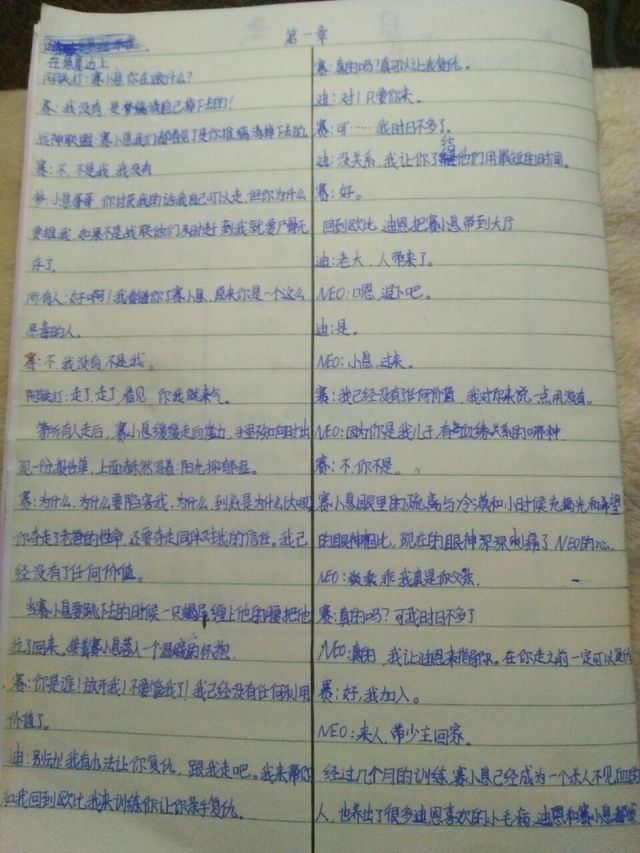 第一章
在悬崖边上
阿铁打：赛小息你在做什么？
赛：我没有，是梦偏请自己掉下去的！
战神联盟：赛小息我们都看见了是你推 掉下去的。
赛：不，不是我，我没有
梦：小息哥哥，你讨厌我的话我自己可以走，但你为什么
要推我，如果不是战联他们及时赶到我就要尸骨无
存了。
所有人：好啊！我看错你了赛小息，原来你是一个这么
恶毒的人。
赛：不，我没有不是我。
阿铁打：走了，走了，看见 你我就来气。
等所有人走后，赛小息缓缓走向崖边，手里 何时出
现一份报告单，上面赫然写着：阳光抑郁症。
赛：为什么，为什么要陷害我，为什么，到底是为什么（大吼）
你夺走了老爸的性命，还要夺走同伴对我的信任。我已
经没有了任何价值。
当赛小息要跳下去的时候一只蝎尾缠上他的腰把他
拉了回来。接着赛小息落入一个温暖的怀抱
赛：你是谁！放开我！不要管我了！我已经没有任何利用
价值了。
迪：别动！我有办法让你复仇，跟我走吧。我来帮你
和我回到欧比，我来训练你让你亲手复仇。
赛：真的吗？真可以让我复仇。
迪：对！只要你来。
赛：可……我时日不多了。
迪：没关系，我让你了结他们用最短的时间。
赛：好。
回到欧比，迪恩把赛小息带到大厅
迪：老大，人带来了。
NEO：口恩，退下吧。
迪：是。
NEO：小息，过来。
赛：我已经没有任何价值，我对你来说一点用没有。
NEO：因为你是我儿子，有着血缘关系的那种
赛：不，你不是。
赛小息眼里的疏离与冷漠和小时候充满光和希望
的眼神相比，现在的眼神深深刺痛了NEO的心。
NEO：乖，我真是你父亲，
赛：真的吗？可我时日不多了
NEO：真的，我让迪恩来指导你。在你走之前一定可以复仇
赛：好，我加入。
NEO：来人，带少主回家。
经过几个月的训练，赛小息已经成为一个杀人不见血的
人，也养出了很多迪恩喜欢的小毛病，迪恩和赛小息都